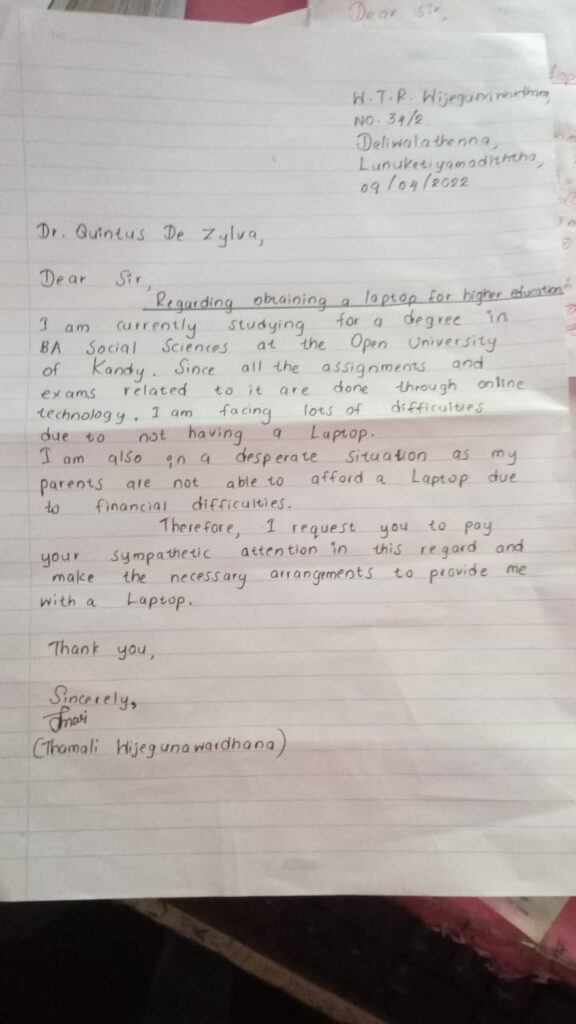 Dear Sir,
W.T.R. Wijegunawardhana
NO. 34/2
Deliwalathenna,
Lunuketiyamadiththa,
09/04/2022
Dr. Quintus De Zylva,
Dear Sir,
Regarding obtaining a laptop for higher education
I am currently studying for a degree in
BA Social Sciences at the Open University
of Kandy. Since all the assignments and
exams related to it are done through online
technology, I am facing lots of difficulties
due to not having a Laptop.
I am also in a desperate situation as my
parents are not able to afford a Laptop due
to financial difficulties.
Therefore, I request you to pay
your sympathetic attention in this regard and
make the necessary arrangements to provide me
with a Laptop.
Thank you,
Sincerely,
(Thamali Wijegunawardhana)